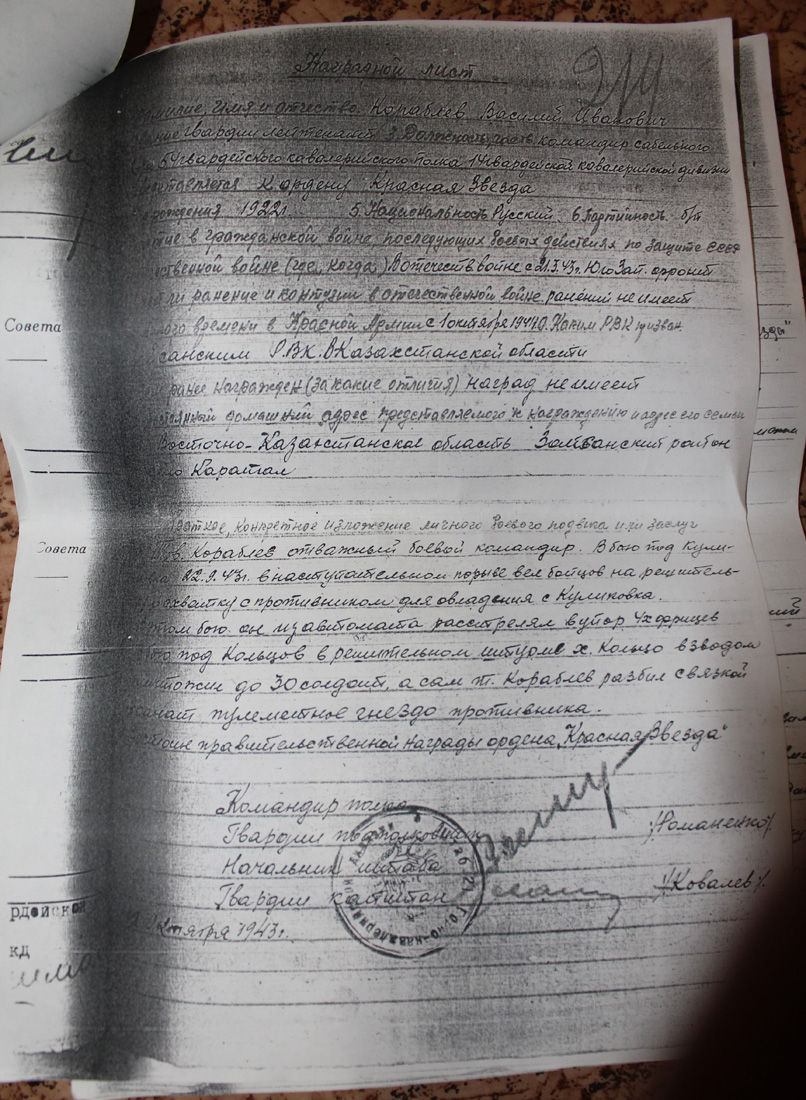 Наградной лист
имя и отчество Кораблев Василий Иванович
Гвардии лейтенант 3. Должность, часть командир сабельного
54 гвардейского кавалерийского полка 14 гвардейской кавалерийской дивизии
К ордену Красная Звезда
рождения 1922г. 5. Национальность Русский 6. Партийность б/п
в гражданской войне, последующих боевых действиях по защите СССР
отечественной войне (где, когда) В отечеств войне с 21.3.43г. Юго Зап. фронт
ли ранение и контузии в отечественной войне ранений не имеет
времени в Красной Армии с 1 октября 1941 РВК призван
РВК. В Казахстанской области
ранее награжден (за какие отличия) наград не имеет
домашний адрес представляемого к награждению и адрес его семьи
Восточно-Казахстанская область район
Каратал
конкретное изложение личного боевого подвига или заслуг
Кораблев отважный боевой командир. В бою под Кули-
22.9.43г. в наступательном порыве вел бойцов на решитель-
схватку с противником для овладения с Куликовка.
бою он из автомата расстрелял в упор 4х фрицев
под Кольцов в решительном штурме х. Кольцо взводом
до 30 солдат, а сам т. Кораблев разбил связкой
гранат пулеметное гнездо противника.
правительственной награды ордена „Красная Звезда"
Командир полка
Гвардии подполковник /Романенко/
Начальник штаба
Гвардии капитан /Ковалев/
октября 1943г.
Совета
Совета
рдейской
кд